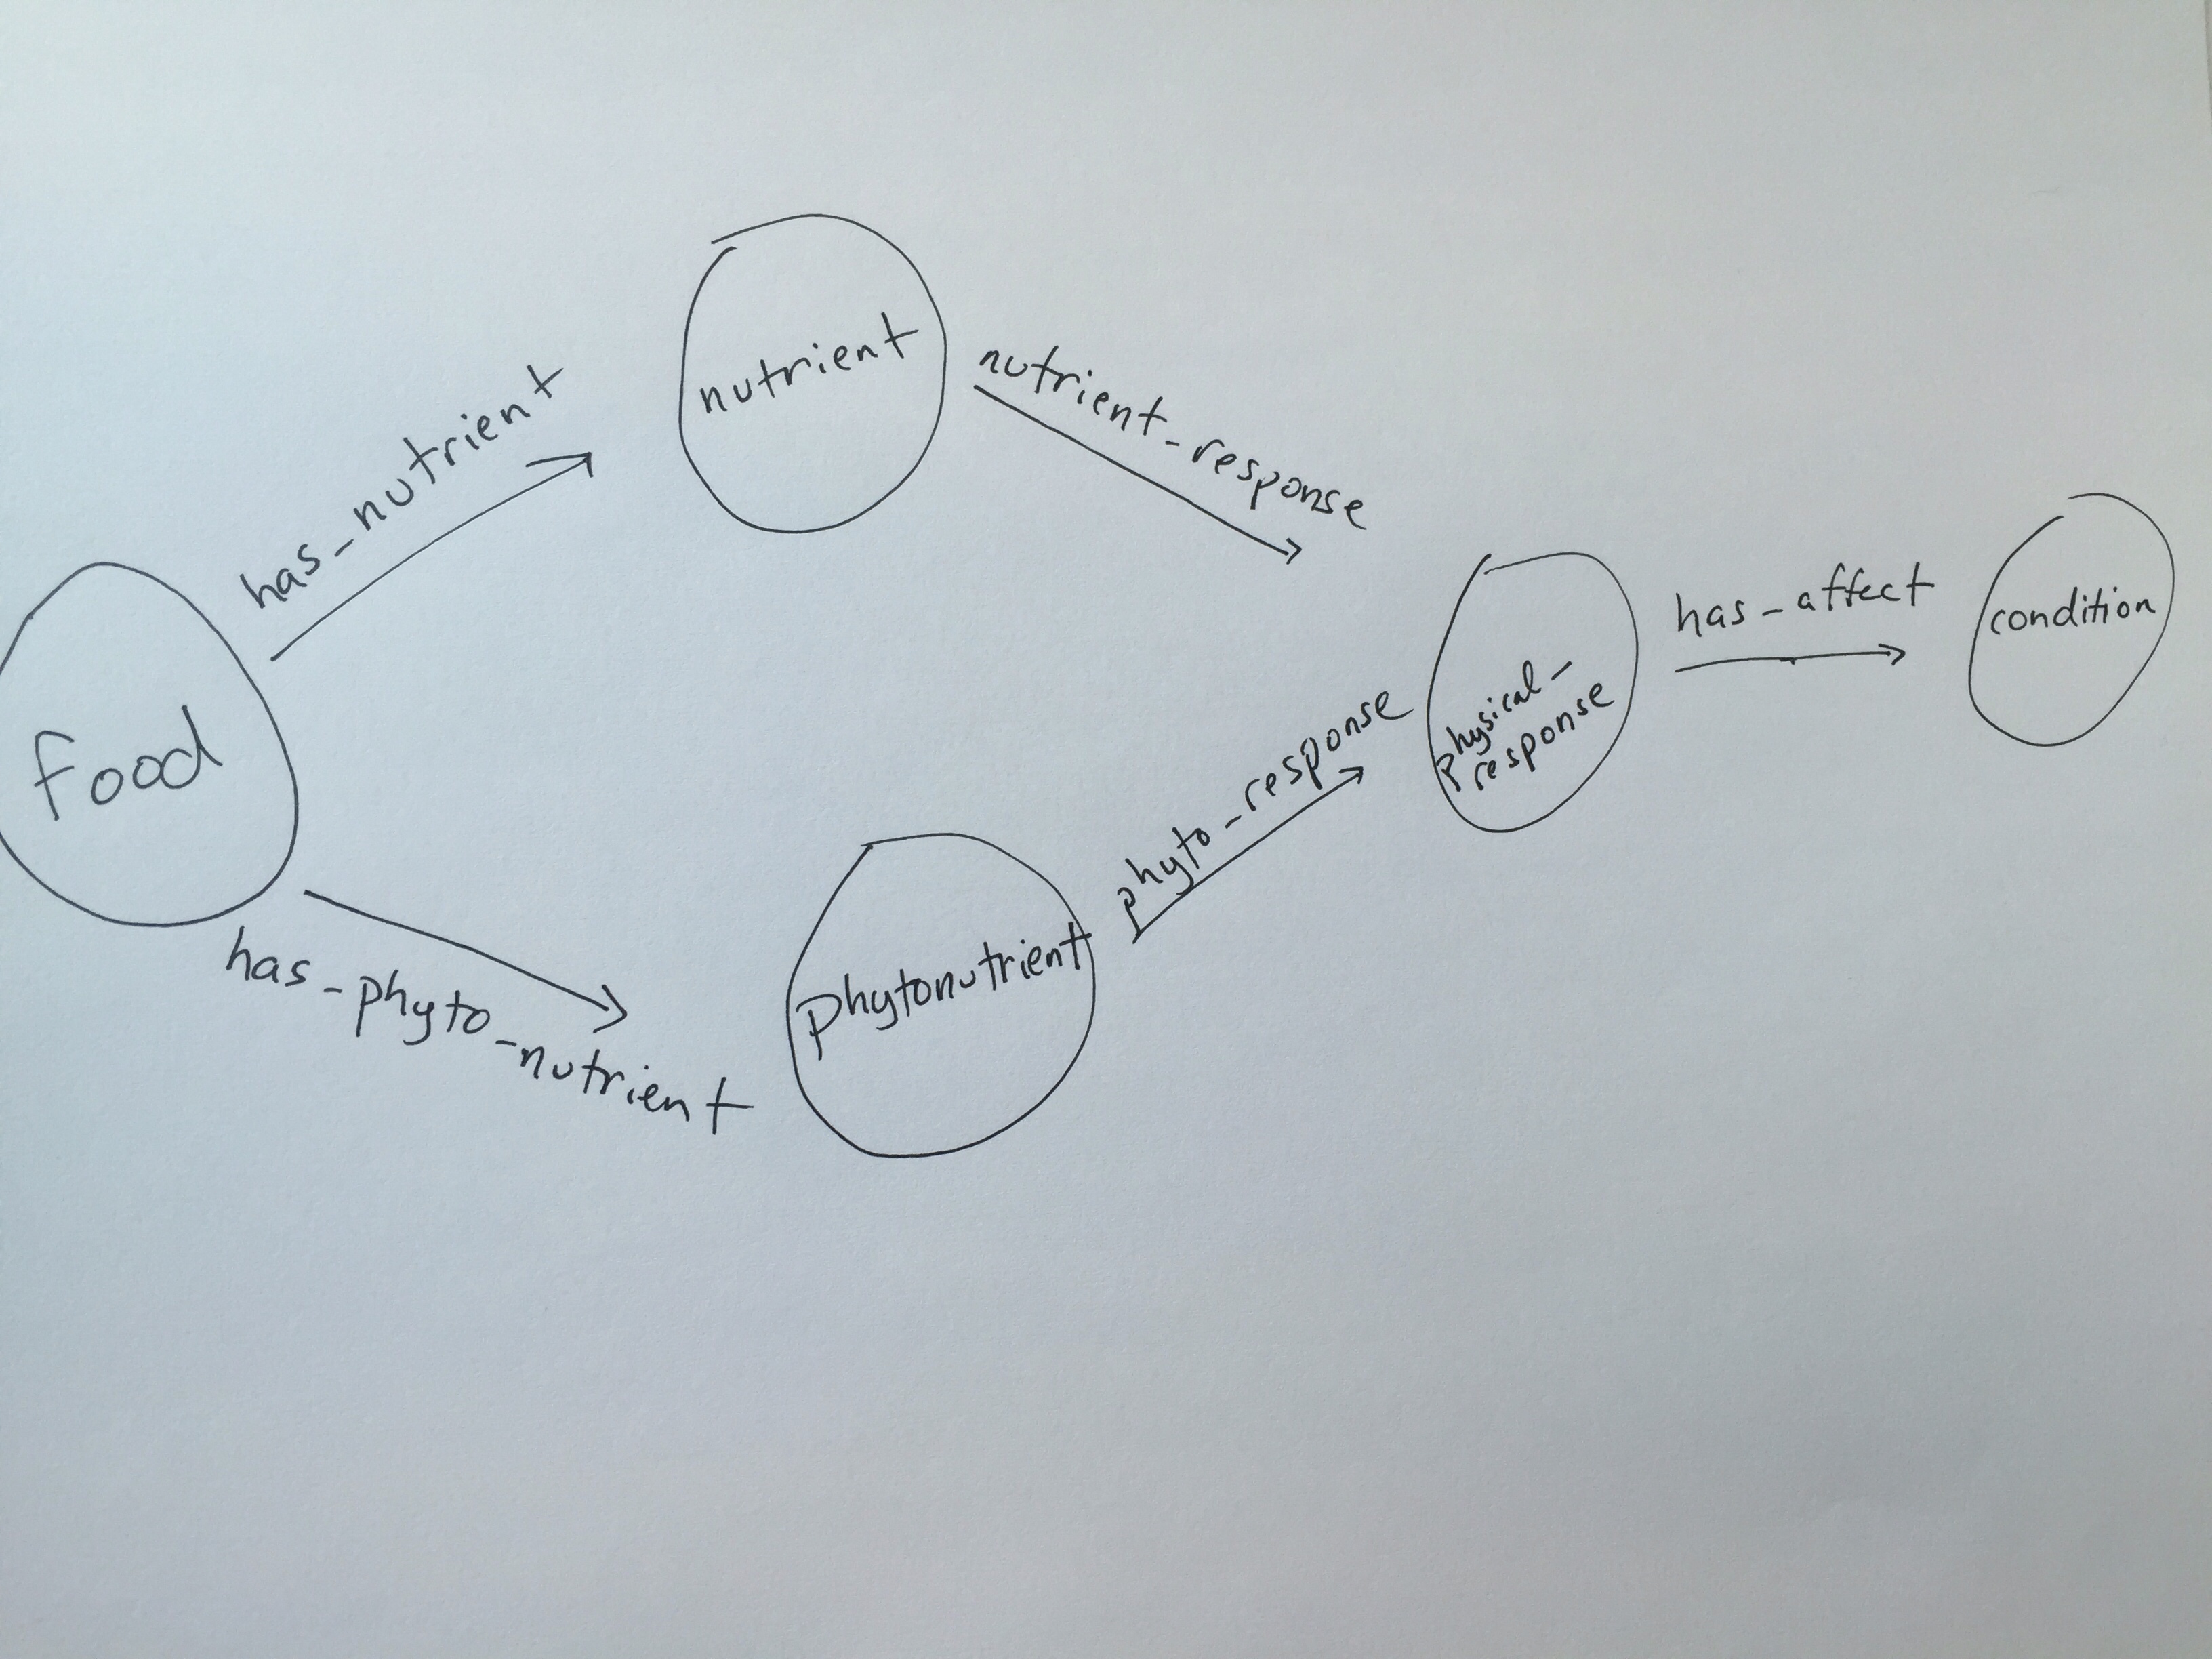 food
has_nutrient
nutrient
nutrient_response
has_phyto_nutrient
phytonutrient
phyto_response
physical_
response
has_affect
condition